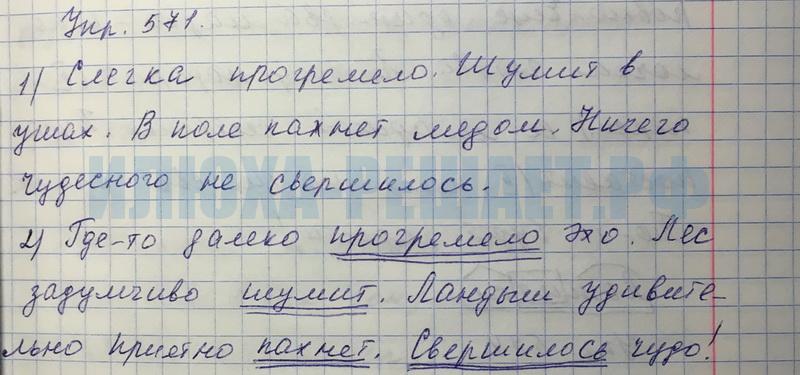 Упр. 571.
1) Слегка прогремело. Шумит в
ушах. В поле пахнет медом. Ничего
ИЛЮХА-РЕШАЕТ.РФ
чудесного не свершилось.
2) Где-то далеко прогремело эхо. Лес
задумчиво шумит. Ландыш удивите-
льно приятно пахнет. Свершилось чудо!